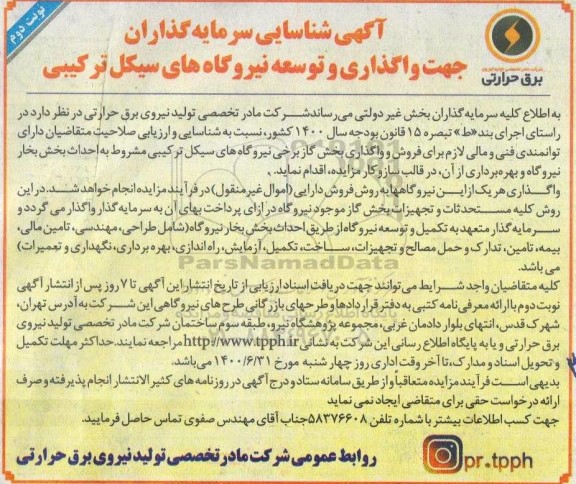 نوبت دوم
آگهی شناسایی سرمایه گذاران
جهت واگذاری و توسعه نیروگاه های سیکل ترکیبی
برق حرارتی
به اطلاع کلیه سرمایه گذاران بخش غیر دولتی می‌رساند شرکت مادر تخصصی تولید نیروی برق حرارتی در نظر دارد در
راستای اجرای بند «ط» تبصره ۱۵ قانون بودجه سال ۱۴۰۰ کشور، نسبت به شناسایی و ارزیابی صلاحیت متقاضیان دارای
توانمندی فنی و مالی لازم برای فروش و واگذاری بخش گاز برخی نیروگاه های سیکل ترکیبی مشروط به احداث بخش بخار
نیروگاه و بهره برداری از آن، در قالب ساز و کار مزایده، اقدام نماید.
واگذاری هریک از این نیروگاهها به روش فروش دارایی (اموال غیر منقول) در فرآیند مزایده انجام خواهد شد. در این
روش کلیه مستحدثات و تجهیزات بخش گاز موجود نیروگاه در ازای پرداخت بهای آن به سرمایه گذار واگذار می گردد و
سرمایه گذار متعهد به تکمیل و توسعه نیروگاه از طریق احداث بخش بخار نیروگاه (شامل طراحی، مهندسی، تامین مالی،
بیمه، تامین، تدارک و حمل مصالح و تجهیزات، ساخت، تکمیل، آزمایش، راه اندازی، بهره برداری، نگهداری و تعمیرات)
می باشد.
ParsNamadData
کلیه متقاضیان واجد شرایط می توانند جهت دریافت اسناد ارزیابی از تاریخ انتشار این آگهی تا ۷ روز پس از انتشار آگهی
نوبت دوم با ارائه معرفی نامه کتبی به دفتر قراردادها و طرحهای بازرگانی طرح های نیروگاهی این شرکت به آدرس تهران،
شهرک قدس، انتهای بلوار دادمان غربی، مجموعه پژوهشگاه نیرو، طبقه سوم ساختمان شرکت مادر تخصصی تولید نیروی
برق حرارتی و یا به پایگاه اطلاع رسانی این شرکت به نشانی http://www.tpph.ir مراجعه نمایند. حداکثر مهلت تکمیل
و تحویل اسناد و مدارک، تا آخر وقت اداری روز چهار شنبه مورخ ۱۴۰۰/۶/۳۱ می‌باشد.
بدیهی است فرآیند مزایده متعاقباً و از طریق سامانه ستاد و درج آگهی در روزنامه های کثیر الانتشار انجام پذیرفته و صرف
ارائه درخواست حقی برای متقاضی ایجاد نمی نماید
جهت کسب اطلاعات بیشتر با شماره تلفن ۵۸۳۷۶۶۰۸ جناب آقای مهندس صفوی تماس حاصل فرمایید.
روابط عمومی شرکت مادر تخصصی تولید نیروی برق حرارتی
pr.tpph